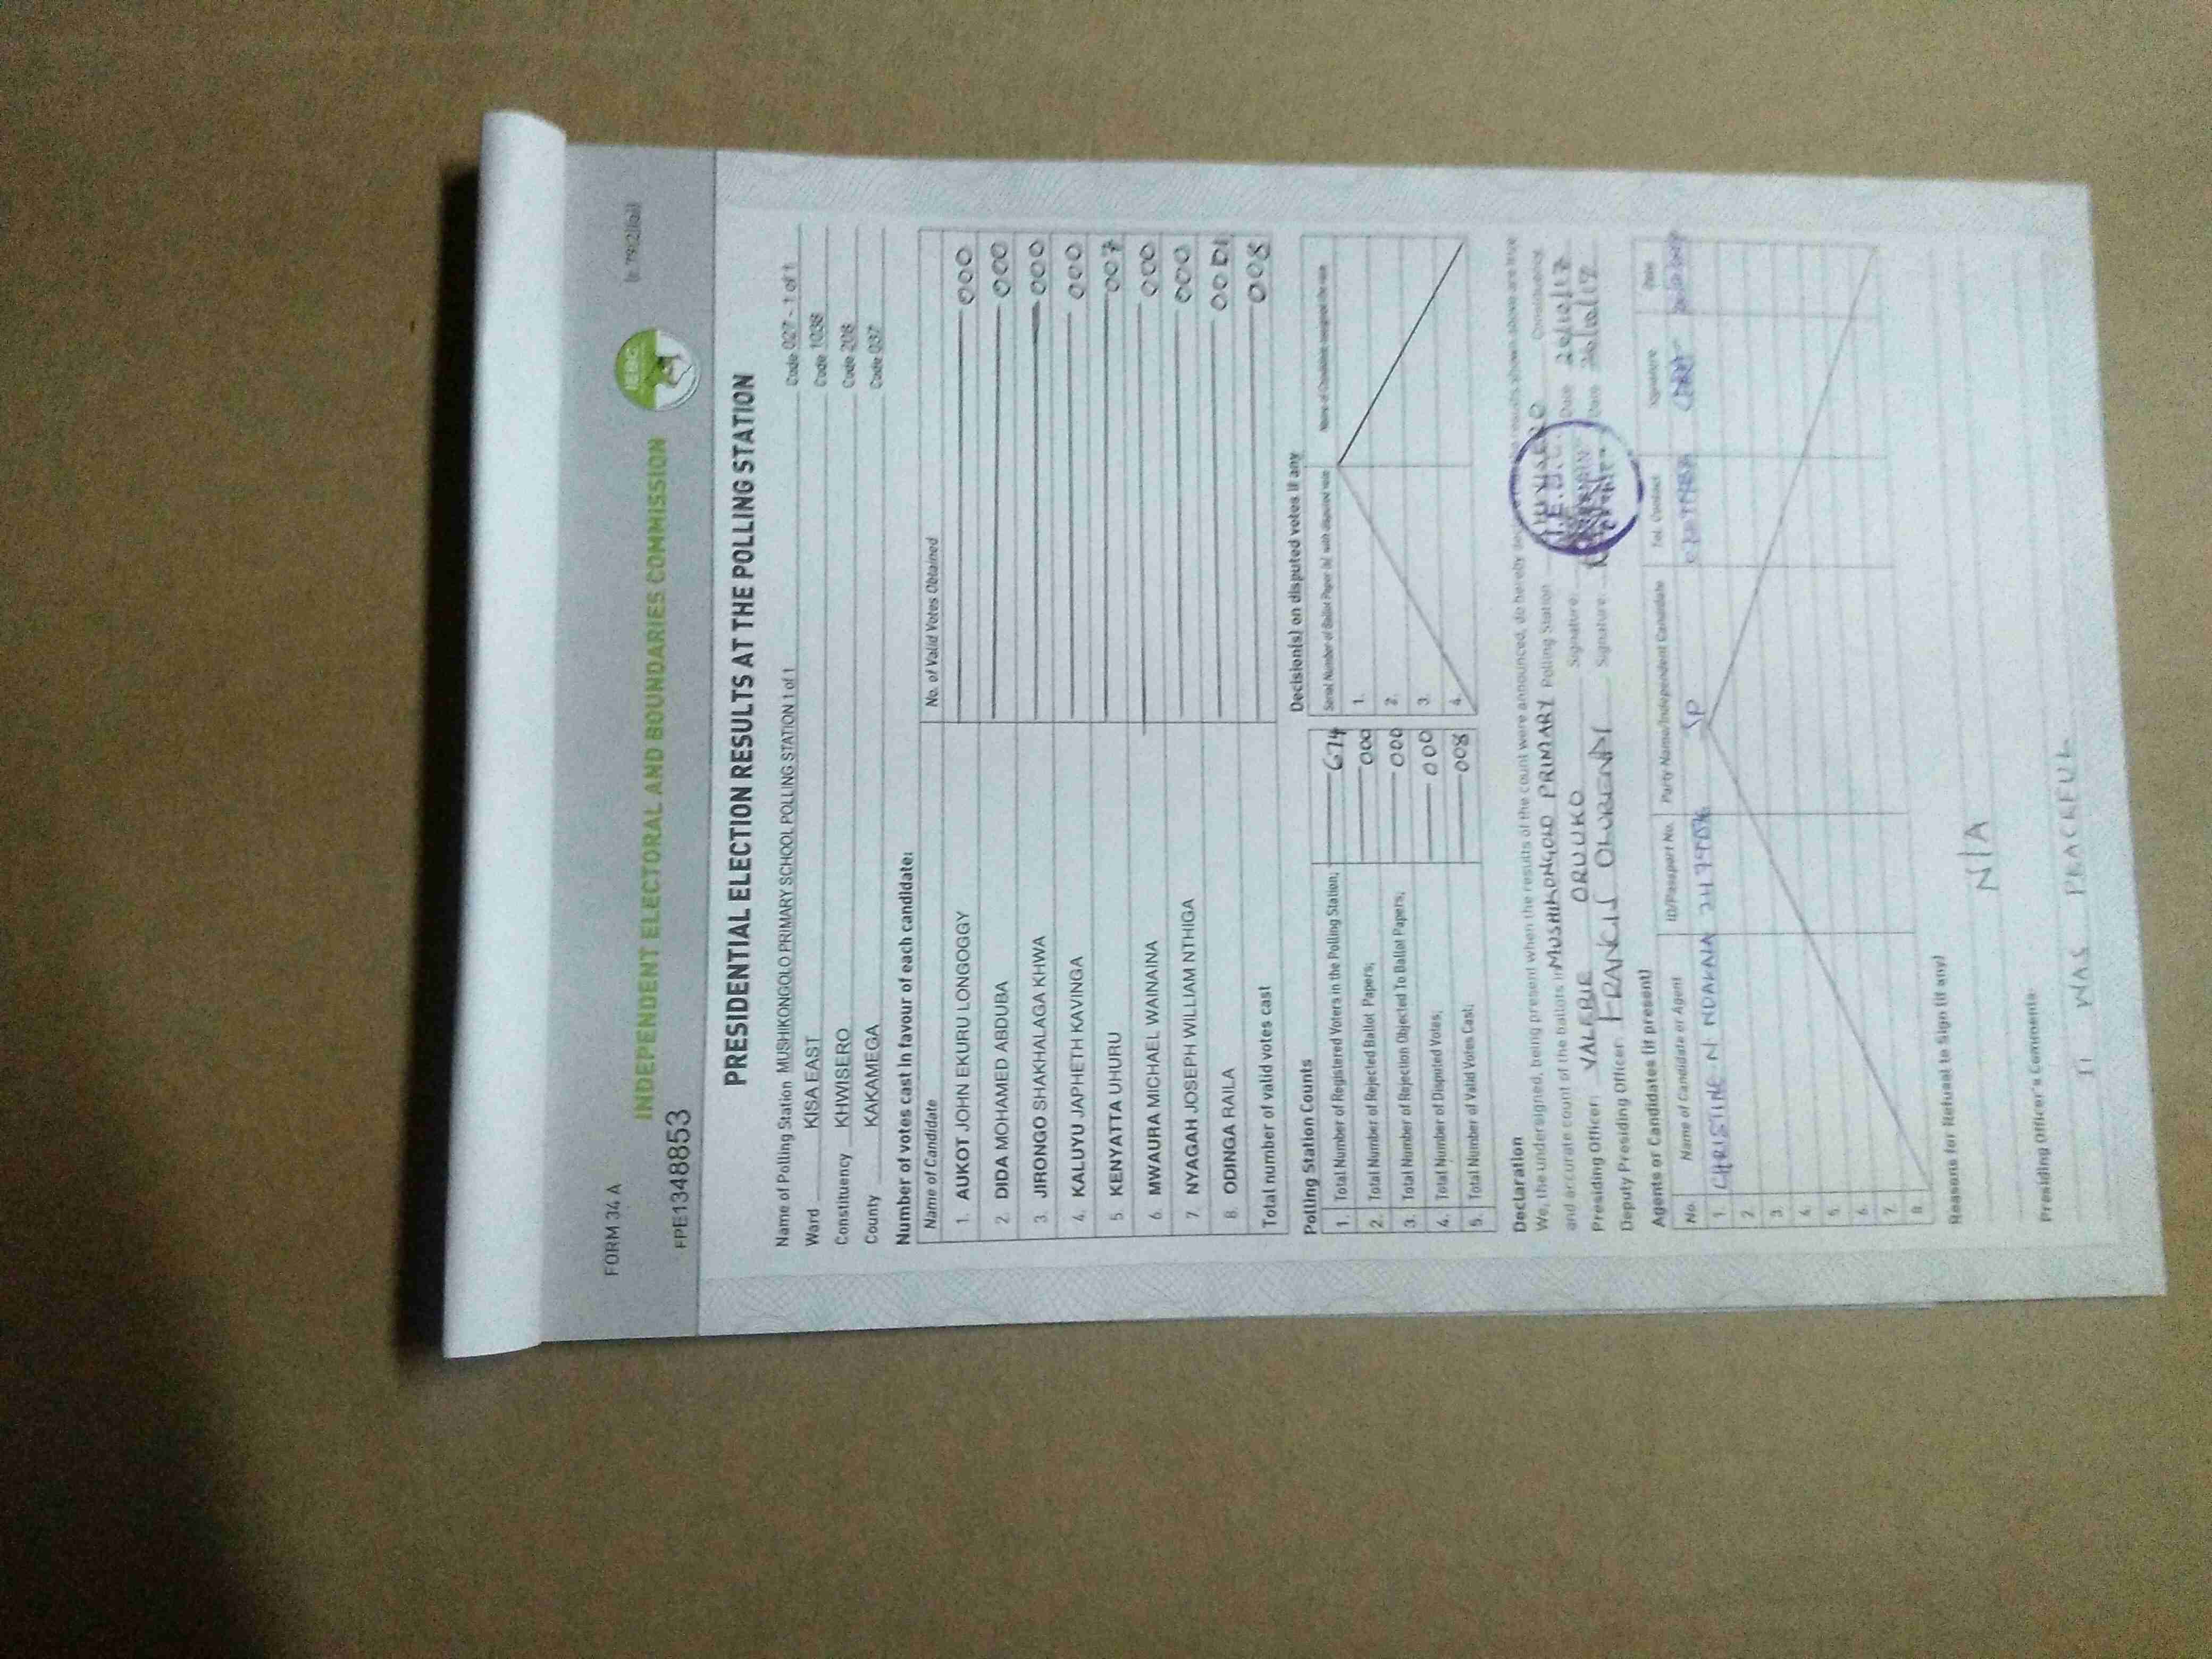 FORM 34 A
INDEPENDENT ELECTORAL AND BOUNDARIES COMMISSION
IEBC
FPE1348853
PRESIDENTIAL ELECTION RESULTS AT THE POLLING STATION
Name of Polling Station MUSHIKONGOLO PRIMARY SCHOOL POLLING STATION 1 of 1 Code 027 - 1 of 1
Ward KISA EAST Code 1038
Constituency KHWISERO Code 208
County KAKAMEGA Code 037
Number of votes cast in favour of each candidate:
Name of Candidate No. of Valid Votes Obtained
1. AUKOT JOHN EKURU LONGOGGY 000
2. DIDA MOHAMED ABDUBA 000
3. JIRONGO SHAKHALAGA KHWA 000
4. KALUYU JAPHETH KAVINGA 000
5. KENYATTA UHURU 007
6. MWAURA MICHAEL WAINAINA 000
7. NYAGAH JOSEPH WILLIAM NTHIGA 000
8. ODINGA RAILA
Total number of valid votes cast 008
Polling Station Counts
1. Total Number of Registered Voters in the Polling Station; 674
2. Total Number of Rejected Ballot Papers; 000
3. Total Number of Rejection Objected To Ballot Papers; 000
4. Total Number of Disputed Votes; 000
5. Total Number of Valid Votes Cast; 008
Decision(s) on disputed votes if any
Serial Number of Ballot Paper (s) with disputed vote Name of Candidate assigned the vote
1.
2.
3.
4.
Declaration
We, the undersigned, being present when the results of the count were announced, do hereby results shown above are true
and accurate count of the ballots in MUSHIKONGOLO PRIMARY Polling Station KHWISERO Constituency
Presiding Officer: VALERIE ORUUKO Signature: Date 26/10/17
Deputy Presiding Officer: FRANCIS Signature: Date 26/10/17
Agents or Candidates (if present)
No. Name of Candidate or Agent ID/Passport No. Party Name/Independent Candidate Tel. Contact Signature Date
1. CHRISTINE N NDAKALA JP
2.
3.
4.
5.
6.
7.
8.
Reasons for Refusal to Sign (if any)
N/A
Presiding Officer's Comments:
IT WAS PEACEFUL